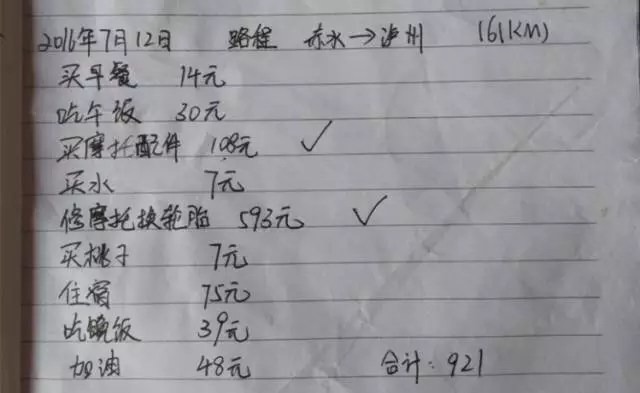 2016年7月12日 路程 赤水→泸州 161KM)
买早餐 14元
吃午饭 30元
买摩托配件 108元 ✓
买水 7元
修摩托换轮胎 593元 ✓
买桃子 7元
住宿 75元
吃晚饭 39元
加油 48元 合计:921